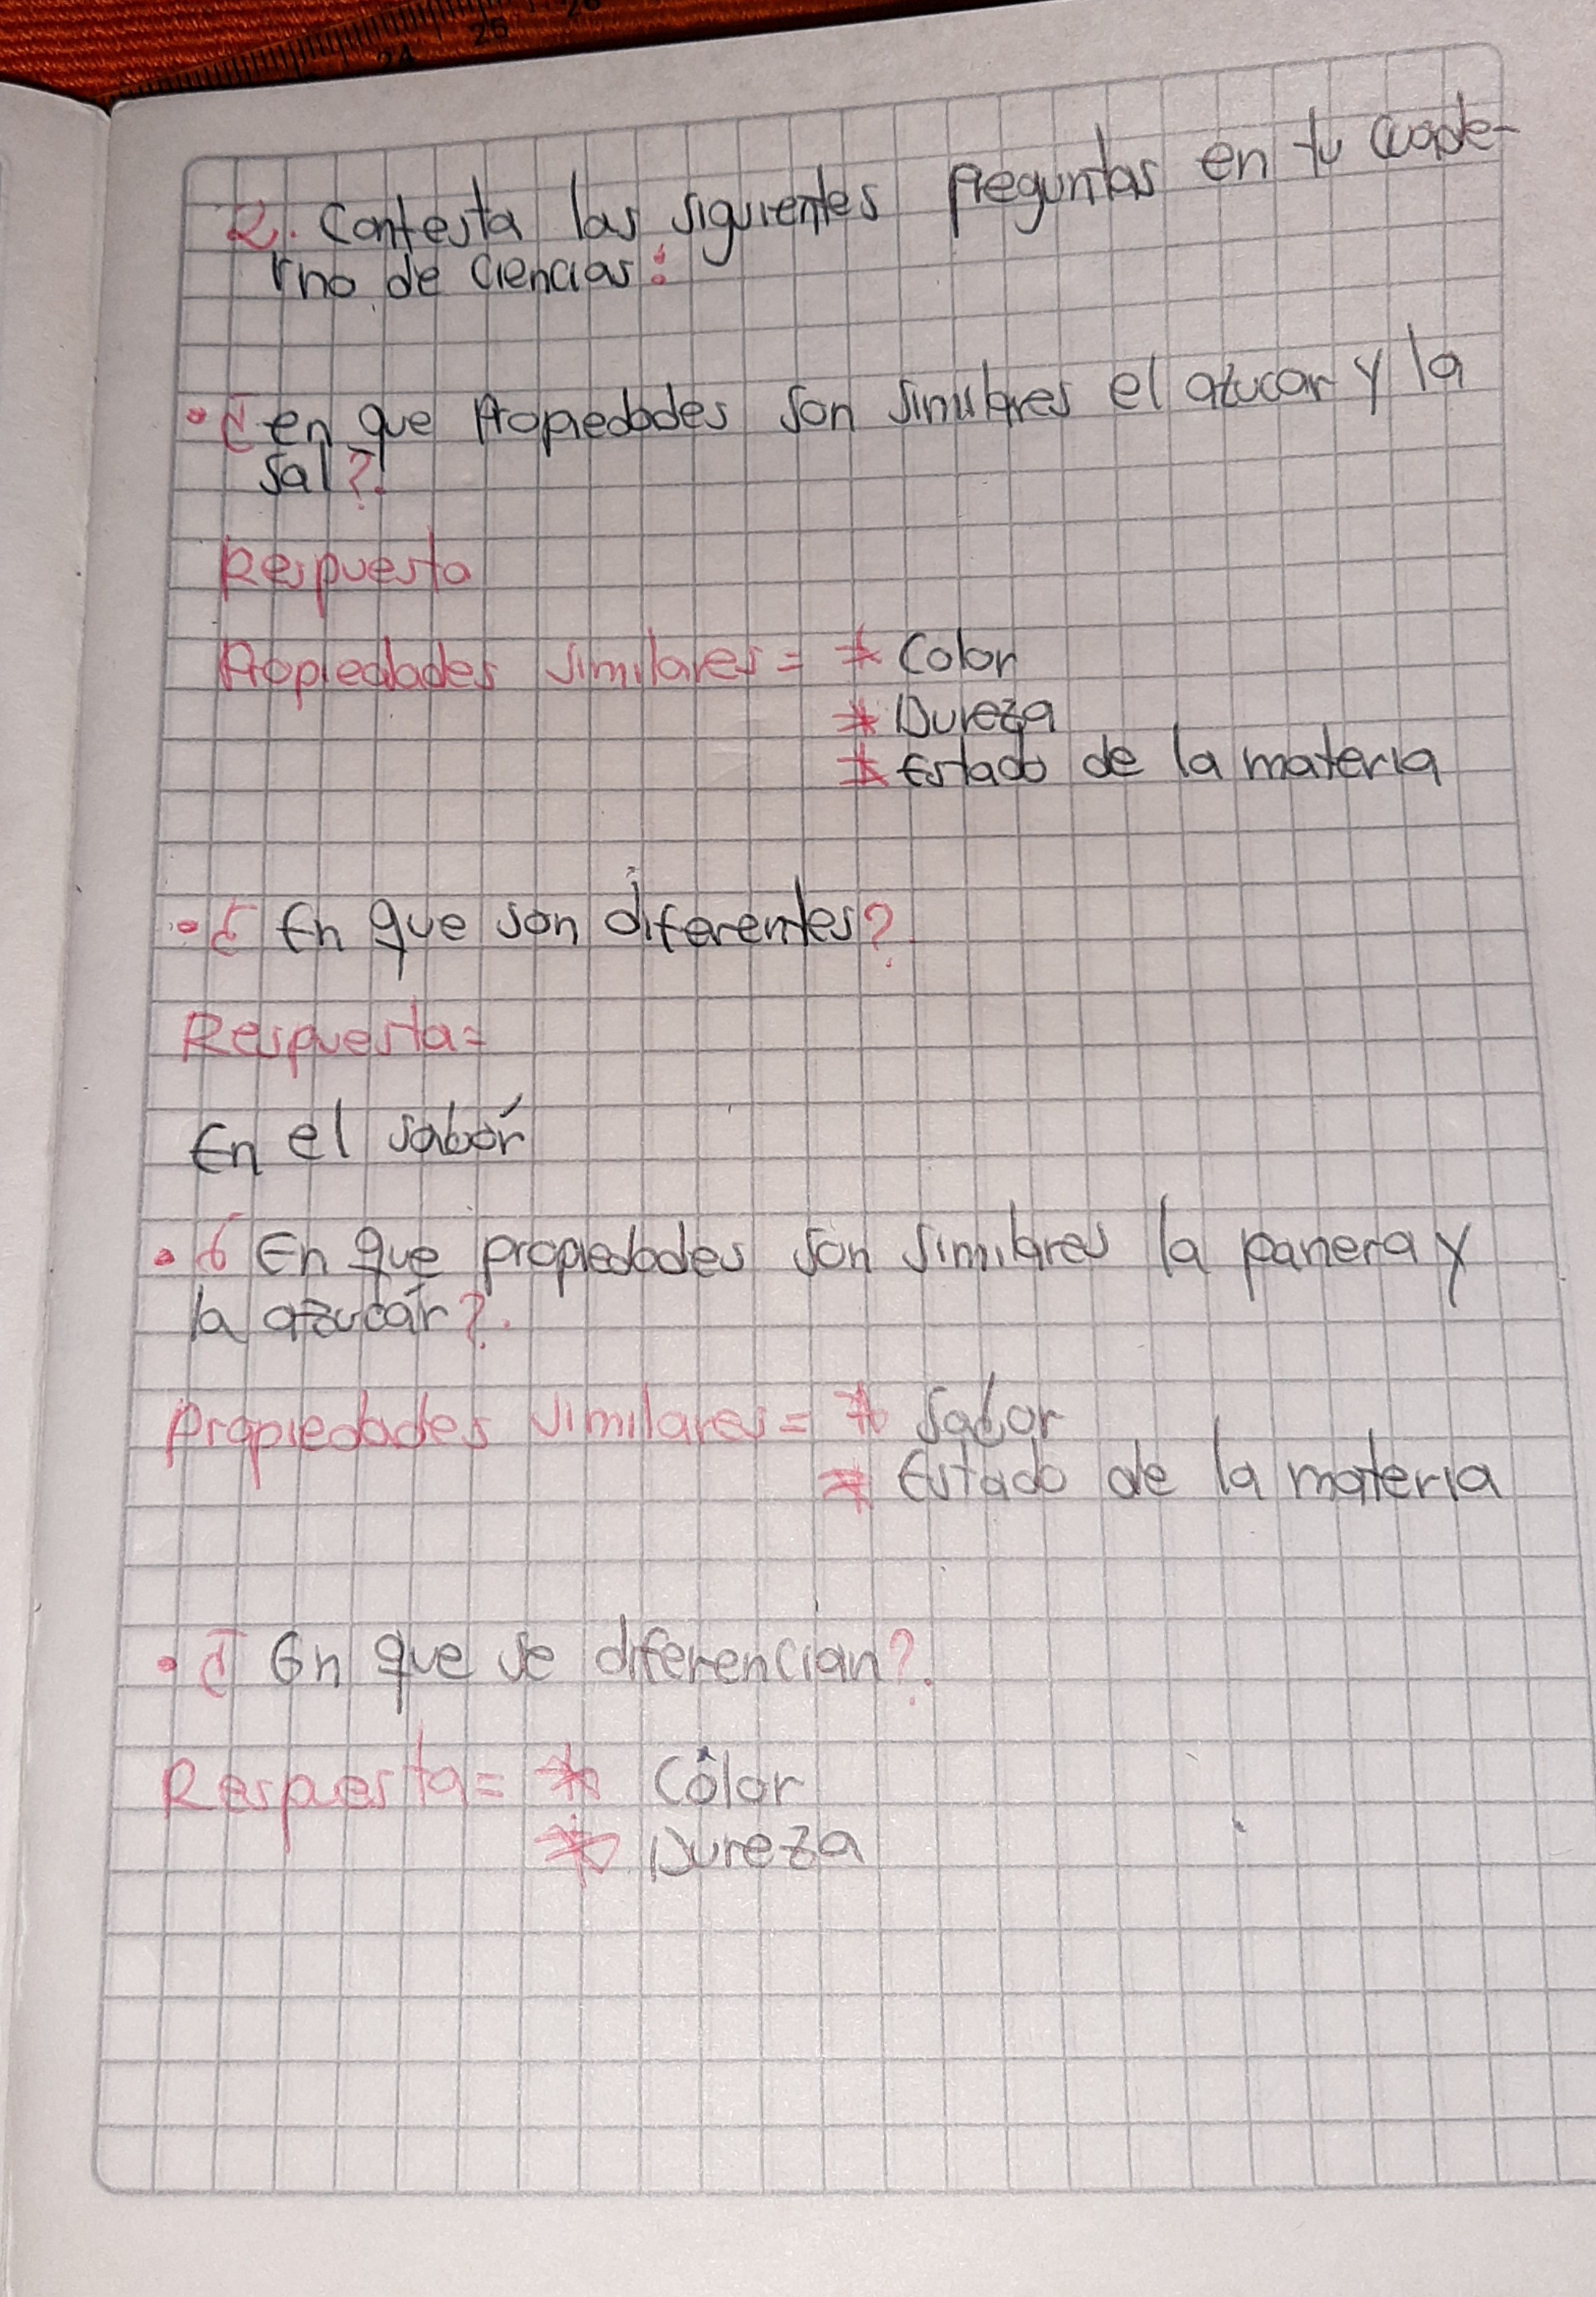 24 25 26
2. Contesta las siguientes preguntas en tu cuade-
rno de ciencias:
• ¿en que Propiedades son similares el azucar y la
sal?.
Respuesta
Propiedades similares = * Color
* Dureza
* Estado de la materia
• ¿ En que son diferentes?.
Respuesta =
En el sabór
• ¿ En que propiedades son similares la panera y
la azucár?.
Propiedades similares = * Sabor
* Estado de la materia
• ¿ En que se diferencian?.
Respuesta = * Color
* Dureza